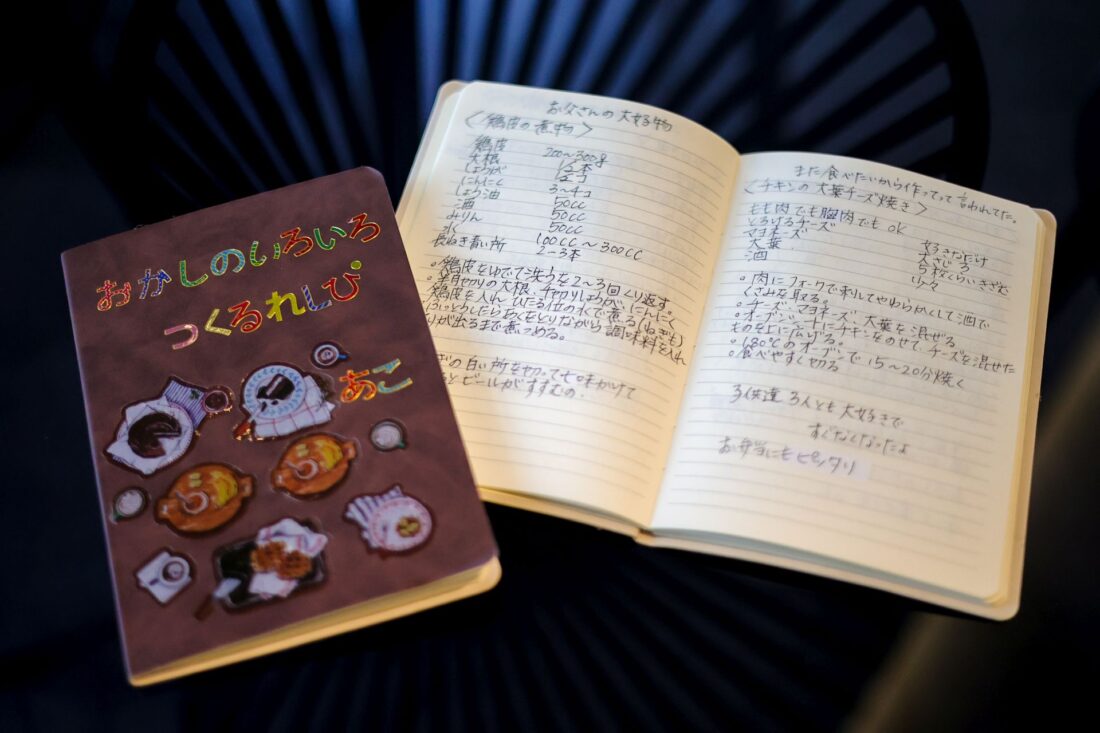 おかしのいろいろ
つくるれしぴ
あこ
お父さんの大好物
<鶏皮の煮物>
鶏皮 200〜300g
大根 1/2本
しょうが 1/2コ
にんにく 3〜4コ
しょう油 50cc
酒 50cc
みりん 50cc
水 100cc〜300cc
長ねぎ青い所 2-3本
○鶏皮をゆでて洗うを2〜3回くり返す。
切りの大根、しょうが、にんにく
鶏皮を入れ、ひたる位の水で煮る(ねぎも)
をとりながら調味料を入れ
が出るまで煮つめる。
の白い所を切って七味かけて
とビールがすすむの。
また食べたいから作ってって言われてた。
<チキンの大葉チーズ焼き>
もも肉でも胸肉でもOK
とろけるチーズ 好きなだけ
マヨネーズ 大さじ3
大葉 5枚くらいきざむ
酒 少々
○肉にフォークで刺してやわらかくして酒で
くさみを取る。
○チーズ マヨネーズ 大葉を混ぜる
○オーブンシートにチキンをのせて、チーズを混ぜた
ものを上に広げる。
○180℃のオーブンで15〜20分焼く
○食べやすく切る
子供達3人とも大好きで
すぐなくなったよ
お弁当にもピッタリ